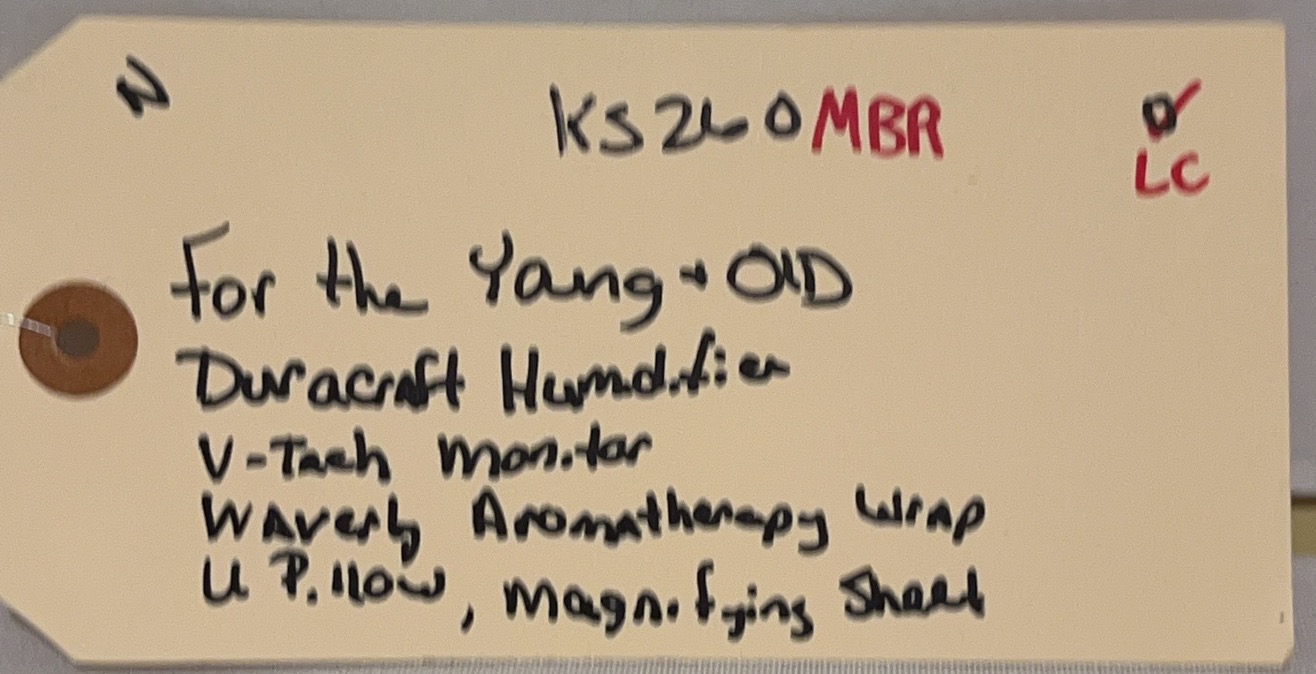 N
KS260MBR
LC
For the Yang + OlD
Duracraft Humdifier
V-Tech Monitor
Waverly Aromatherapy Wrap
U Pillow, Magnifying Sheet